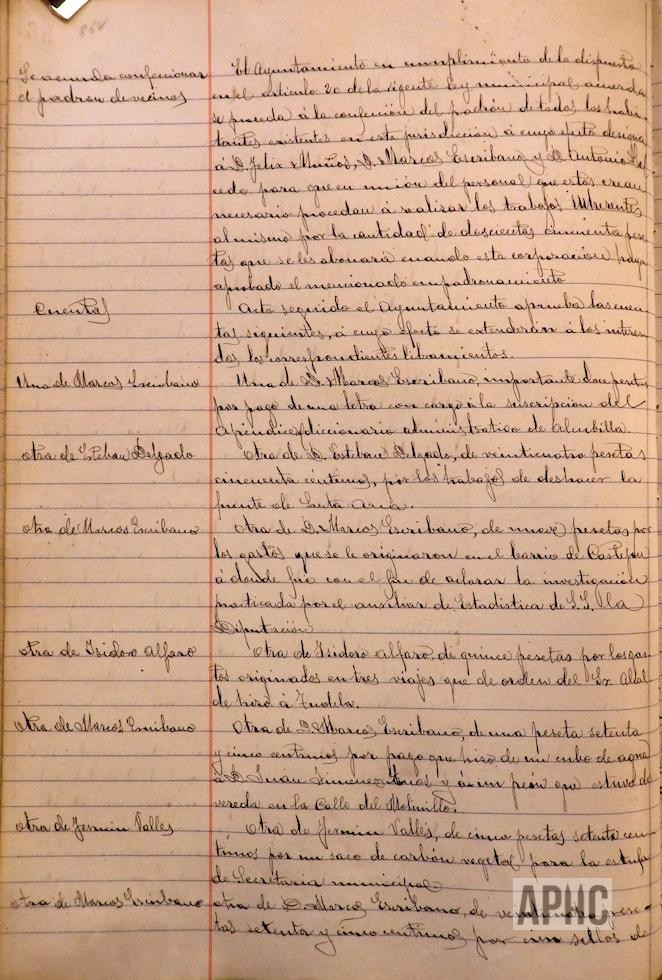 Se acuerda confeccionar
el padron de vecinos
El Ayuntamiento en cumplimiento de lo dispuesto
en el articulo 20 de la vigente Ley municipal, acuerda
se proceda á la confección del padrón de todos los habi-
tantes existentes en esta jurisdiccion á cuyo efecto designa
á D. Felix Muñoz, D. Marcos Escribano y D. Antonio
cedo para que en unión del personal que estos crean
necesario procedan á realizar los trabajos inherentes
al mismo por la cantidad de doscientas cincuenta pese-
tas que se les abonará cuando esta corporación haya
aprobado el mencionado empadronamiento
Cuentas
Acto seguido el Ayuntamiento aprueba las cuen-
tas siguientes, á cuyo efecto se extenderán á los interesa-
dos los correspondientes libramientos.
Una de Marcos Escribano
Una de D. Marcos Escribano, importante doce pesetas
por pago de una letra con cargo á la suscripcion del
Apendice diccionario administrativo de Alcubilla.
Otra de Esteban Delgado
Otra de D. Esteban Delgado, de veinticuatro pesetas
cincuenta centimos, por los trabajos de deshacer la
fuente de Santa Ana.
Otra de Marcos Escribano
Otra de D. Marcos Escribano, de nueve pesetas por
los gastos que se le originaron en el barrio de Castejon
á donde fué con el fin de aclarar la investigación
practicada por el auxiliar de Estadistica de S.S. la
Diputación
Otra de Isidoro Alfaro
Otra de Isidoro Alfaro, de quince pesetas por los gas-
tos originados en tres viajes que de orden del Sr. Alcal-
de hizo á Tudela.
Otra de Marcos Escribano
Otra de D. Marcos Escribano, de una peseta setenta
y cinco centimos por pago que hizo de un cubo de agua
á D. Juan Jimenez y á un peón que estuvo de
vereda en la Calle del Molinillo.
Otra de Fermin Valles
Otra de Fermin Vallés, de cinco pesetas setenta cen-
timos por un saco de carbón vegetal para la estufa
de Secretaria municipal
Otra de Marcos Escribano
Otra de D. Marcos Escribano, de pese-
tas setenta y cinco centimos por cien sellos de
APHC